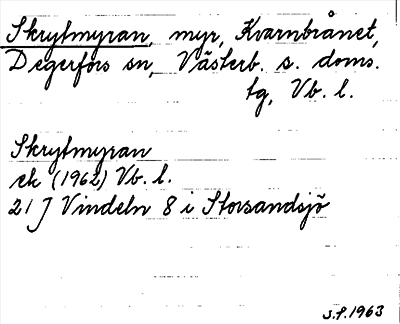 Skrytmyran, myr, Kvarnbrånet,
Degerfors sn, Västerb. s. doms.
tg, Vb. l.
Skrytmyran
ek (1962) Vb. l.
21 J Vindeln 8 i Storsandsjö
S.P. 1963